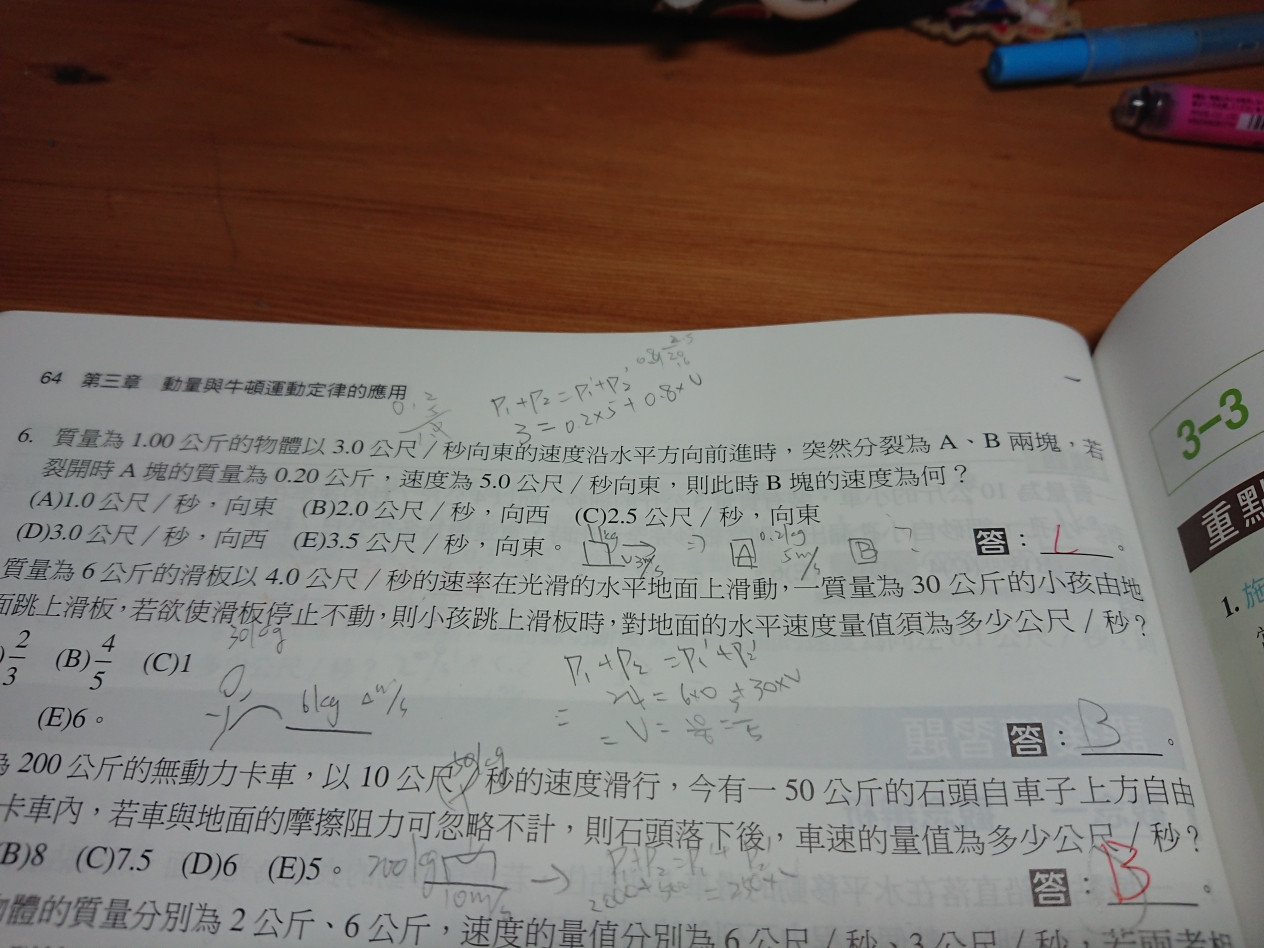 64 第三章 動量與牛頓運動定律的應用
P₁+P₂=P₁'+P₂'
3=0.2×5+0.8×V
6. 質量為 1.00 公斤的物體以 3.0 公尺／秒向東的速度沿水平方向前進時，突然分裂為 A、B 兩塊，若
裂開時 A 塊的質量為 0.20 公斤，速度為 5.0 公尺／秒向東，則此時 B 塊的速度為何？
(A)1.0 公尺／秒，向東 (B)2.0 公尺／秒，向西 (C)2.5 公尺／秒，向東
(D)3.0 公尺／秒，向西 (E)3.5 公尺／秒，向東。
1kg V3m/s ⇒ A 0.2kg 5m/s B
答：。
質量為 6 公斤的滑板以 4.0 公尺／秒的速率在光滑的水平地面上滑動，一質量為 30 公斤的小孩由地
面跳上滑板，若欲使滑板停止不動，則小孩跳上滑板時，對地面的水平速度量值須為多少公尺／秒？
)2/3 (B)4/5 (C)1
(E)6。
30kg
6kg 4m/s
P₁+P₂=P₁'+P₂'
24=6×0+30×V
答：B。
為 200 公斤的無動力卡車，以 10 公尺／秒的速度滑行，今有一 50 公斤的石頭自車子上方自由
卡車內，若車與地面的摩擦阻力可忽略不計，則石頭落下後，車速的量值為多少公尺／秒？
(B)8 (C)7.5 (D)6 (E)5。
50kg
200kg 10m/s →
答：B。
物體的質量分別為 2 公斤、6 公斤，速度的量值分別為 6 公尺／秒、3 公尺／秒，若兩者相
3-3
重點
1. 施